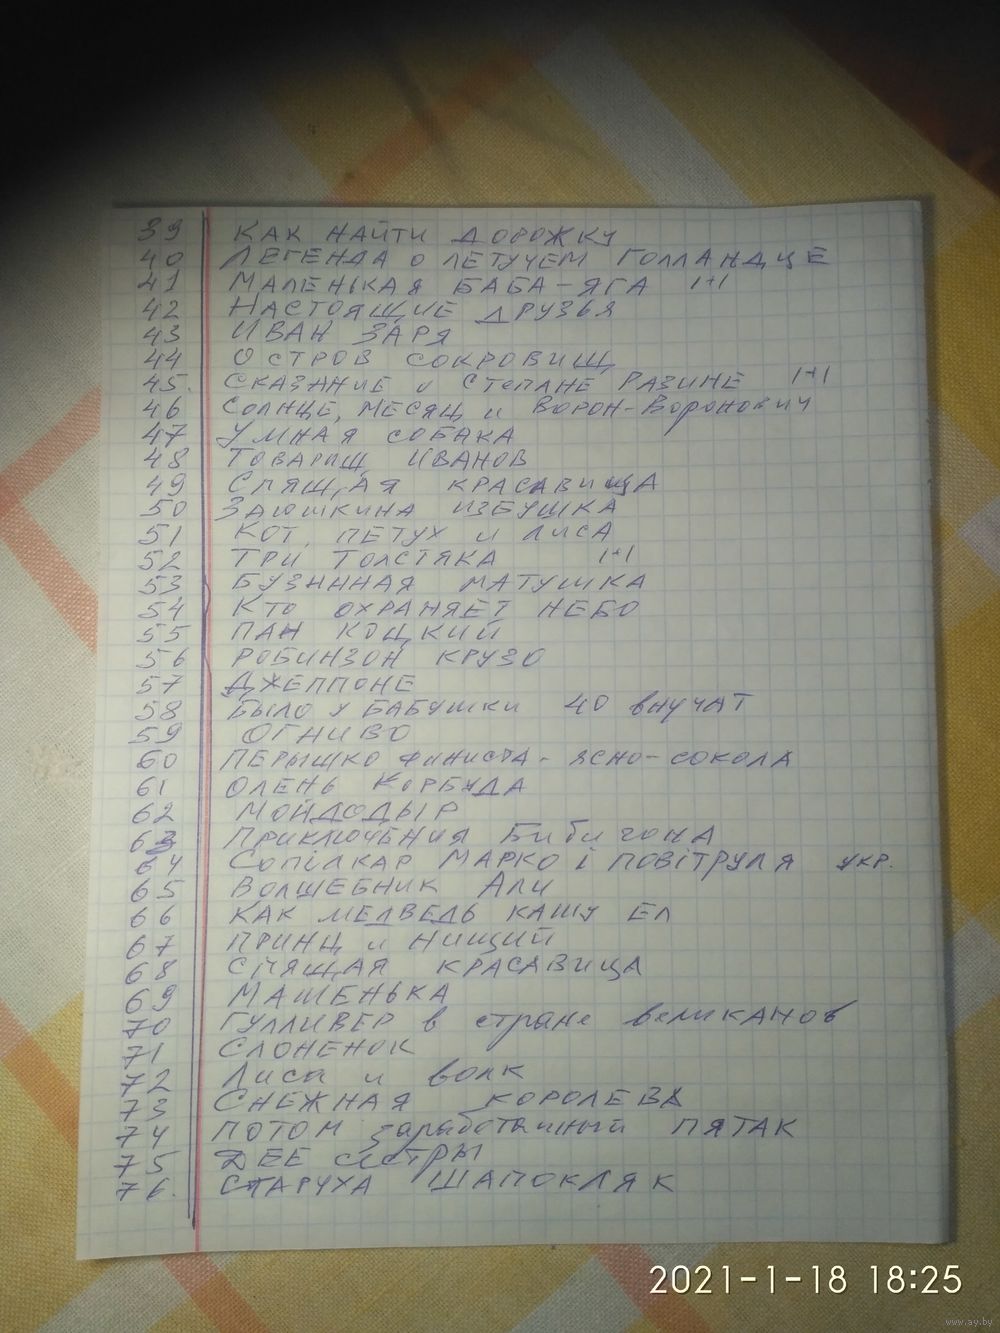 39 КАК НАЙТИ ДОРОЖКУ
40 ЛЕГЕНДА О ЛЕТУЧЕМ ГОЛЛАНДЦЕ
41 МАЛЕНЬКАЯ БАБА-ЯГА 1+1
42 НАСТОЯЩИЕ ДРУЗЬЯ
43 ИВАН ЗАРЯ
44 ОСТРОВ СОКРОВИЩ
45. СКАЗАНИЕ О СТЕПАНЕ РАЗИНЕ 1+1
46 СОЛНЦЕ, МЕСЯЦ И ВОРОН-ВОРОНОВИЧ
47 УМНАЯ СОБАКА
48 ТОВАРИЩ ИВАНОВ
49 СПЯЩАЯ КРАСАВИЦА
50 ЗАЮШКИНА ИЗБУШКА
51 КОТ, ПЕТУХ И ЛИСА
52 ТРИ ТОЛСТЯКА 1+1
53 БУЗИННАЯ МАТУШКА
54 КТО ОХРАНЯЕТ НЕБО
55 ПАН КОЦКИЙ
56 РОБИНЗОН КРУЗО
57 ДЖЕППОНЕ
58 БЫЛО У БАБУШКИ 40 ВНУЧАТ
59 ОГНИВО
60 ПЕРЫШКО ФИНИСТА-ЯСНО-СОКОЛА
61 ОЛЕНЬ КОРБУДА
62 МОЙДОДЫР
63 ПРИКЛЮЧЕНИЯ БИБИГОНА
64 СОПІЛКАР МАРКО І ПОВІТРУЛЯ УКР.
65 ВОЛШЕБНИК АЛИ
66 КАК МЕДВЕДЬ КАШУ ЕЛ
67 ПРИНЦ И НИЩИЙ
68 СПЯЩАЯ КРАСАВИЦА
69 МАШЕНЬКА
70 ГУЛЛИВЕР в стране великанов
71 СЛОНЕНОК
72 Лиса и волк
73 СНЕЖНАЯ КОРОЛЕВА
74 ПОТОМ заработанный ПЯТАК
75 ДВЕ СЕСТРЫ
76. СТАРУХА ШАПОКЛЯК
2021-1-18 18:25
www.ay.by